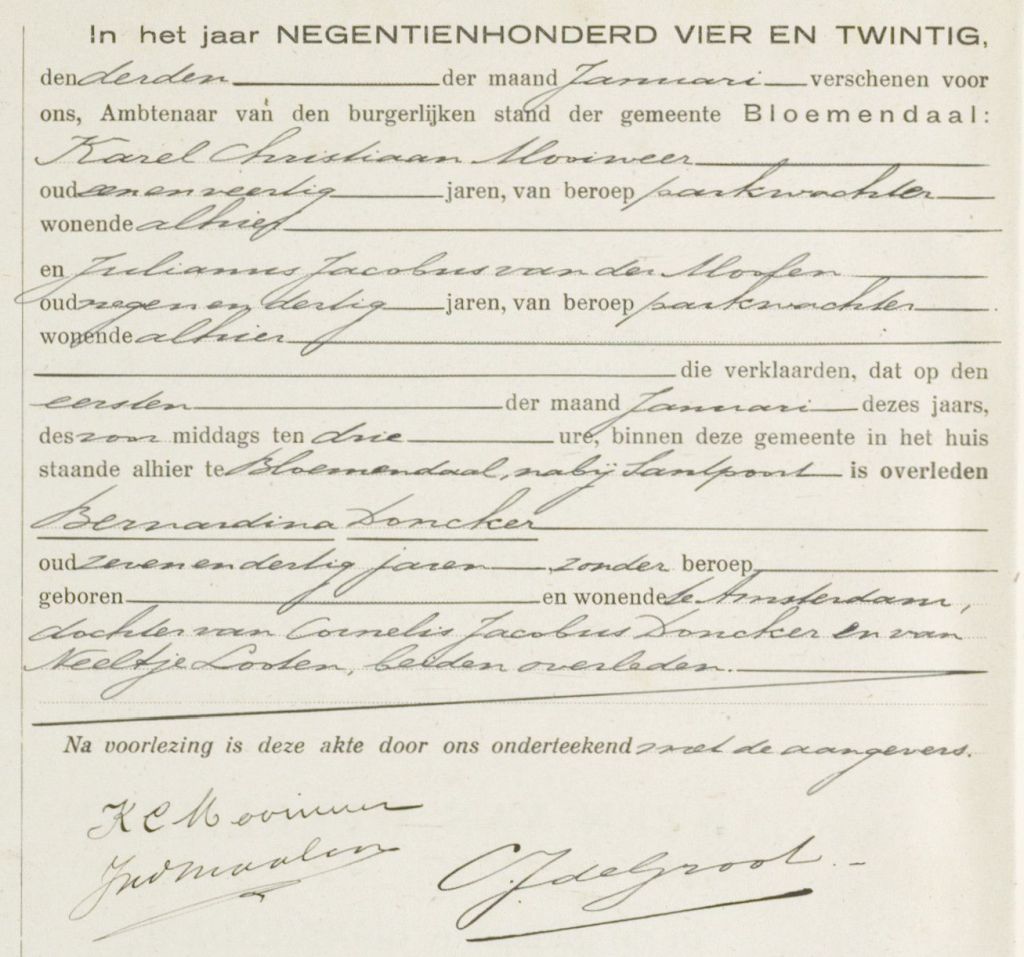 In het jaar NEGENTIENHONDERD VIER EN TWINTIG,
den derden der maand Januari verschenen voor
ons, Ambtenaar van den burgerlijken stand der gemeente Bloemendaal:
Karel Christiaan Mooiweer
oud een en veertig jaren, van beroep parkwachter
wonende alhier
en Julianus Jacobus van der Moolen
oud negen en dertig jaren, van beroep parkwachter
wonende alhier
die verklaarden, dat op den
eersten der maand Januari dezes jaars,
des voor middags ten drie ure, binnen deze gemeente in het huis
staande alhier te Bloemendaal, nabij Santpoort is overleden
Bernardina Doncker
oud zeven en dertig jaren, zonder beroep
geboren en wonende te Amsterdam,
dochter van Cornelis Jacobus Doncker en van
Neeltje Looten, beiden overleden.
Na voorlezing is deze akte door ons onderteekend met de aangevers.
K C Mooiweer
JvdMoolen
C.J. de Groot